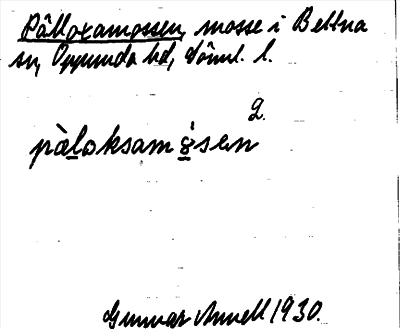 Pålloxamossen, mosse i Bettna
sn, Oppunda hd, Söml. l.
2.
pàloksamósen
Gunnar Annell 1930.